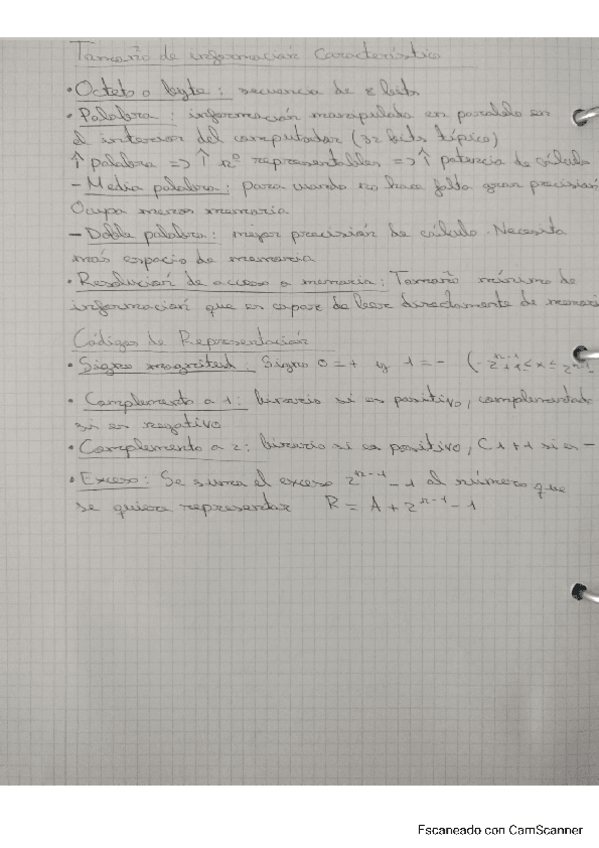 Tamaño de información Característico
• Octeto o byte: secuencia de 8 bits
• Palabra: información manipulada en paralelo en
el interior del computador (32 bits típico)
↑ palabra => ↑ nº representables => ↑ potencia de cálculo
- Media palabra: para cuando no hace falta gran precisión
Ocupa menos memoria
- Doble palabra: mejor precisión de cálculo. Necesita
más espacio de memoria
• Resolución de acceso a memoria: Tamaño mínimo de
información que es capaz de leer directamente de memori
Códigos de Representación
• Signo magnitud: Signo 0 = + y 1 = -
• Complemento a 1: binario si es positivo, complementado
si es negativo
• Complemento a 2: binario si es positivo, C1+1 si es -
• Exceso: Se suma el exceso 2^n-1 - 1 al número que
se quiere representar R = A + 2^n-1 - 1
Escaneado con CamScanner